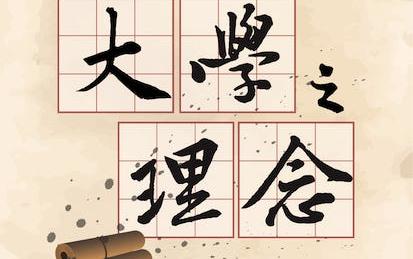 大學之
理念